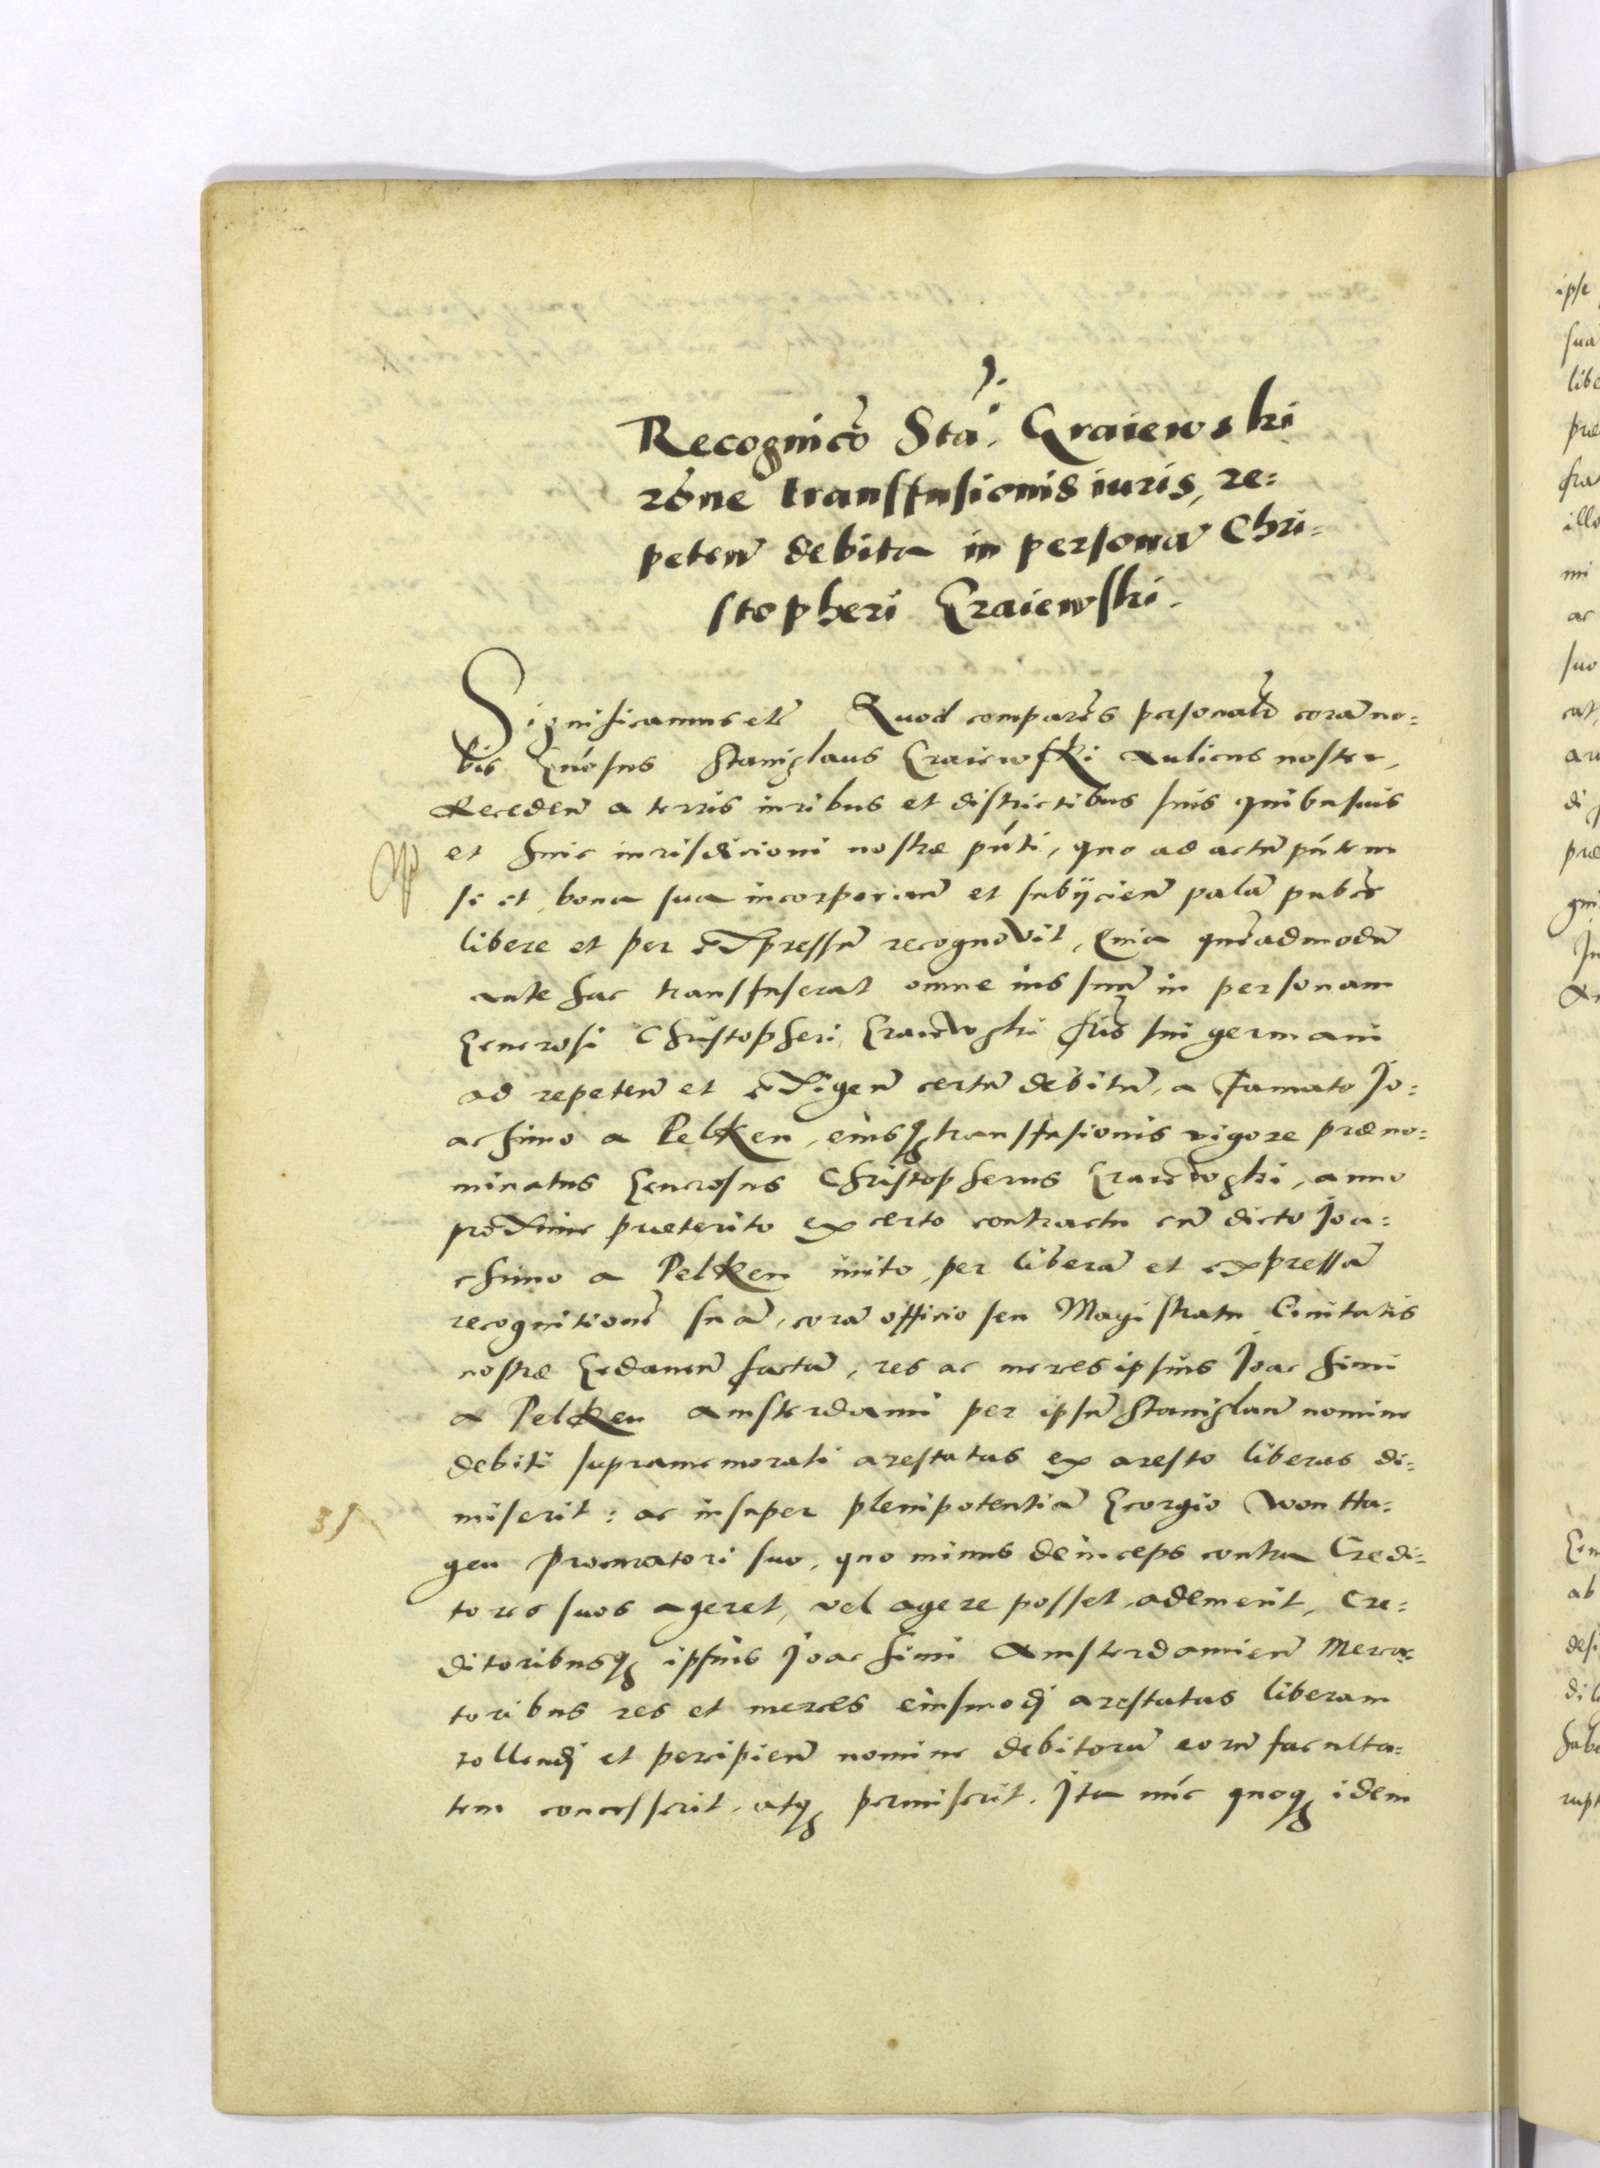 Recognicō Stā. Graiewski
rōne transfusionis iuris, re=
peten̄ debita in personā Chri=
stopheri Graiewski.
Significamus etc̄ Quod comparēs personalr̄ corā no=
bis Gn̄osus Stanislaus Graiewski Aulicus noster,
Receden̄ a terris iuribus et districtibus suis quibusuis
et huic iurisdicioni nostræ pn̄ti, quo ad actū pn̄tem
se et bona sua incorporan̄ et subijcien̄ palā publc̄e
libere et per expressū recognovit, Quia quēadmodū
ante hac transfuserat omne ius suū in personam
Generosi Christopheri Graiewski fr̄is sui germani
ad repeten̄ et exigen̄ certū debitū, a famato Jo=
achimo a Pelken, eiusq transfusionis vigore præno=
minatus Generosus Christopherus Graiewski, anno
proxime præterito ex certo contractu cū dicto Joa=
chimo a Pelken inito, per liberā et expressā
recognitionē suā, corā officio seu Magistratu Ciuitatis
nostræ Gedanen̄ factā, res ac merces ipsius Joachimi
a Pelken Amsterdami per ipsū Stanislaū nomine
debiti supramemorati arestatas ex aresto liberas di=
miserit: ac insuper plenipotentiā Georgio von Ha=
gen procuratori suo, quo minus deinceps contra Credi=
tores suos ageret, vel agere posset, ademerit, Cre=
ditoribusq ipsius Joachimi Amsterdamien̄ Merca=
toribus res et merces eiusmodj arestatas liberam
tollendj et percipien̄ nomine debitorū eorū faculta=
tem concesserit, atq permiserit. Jta nūc quoq idem